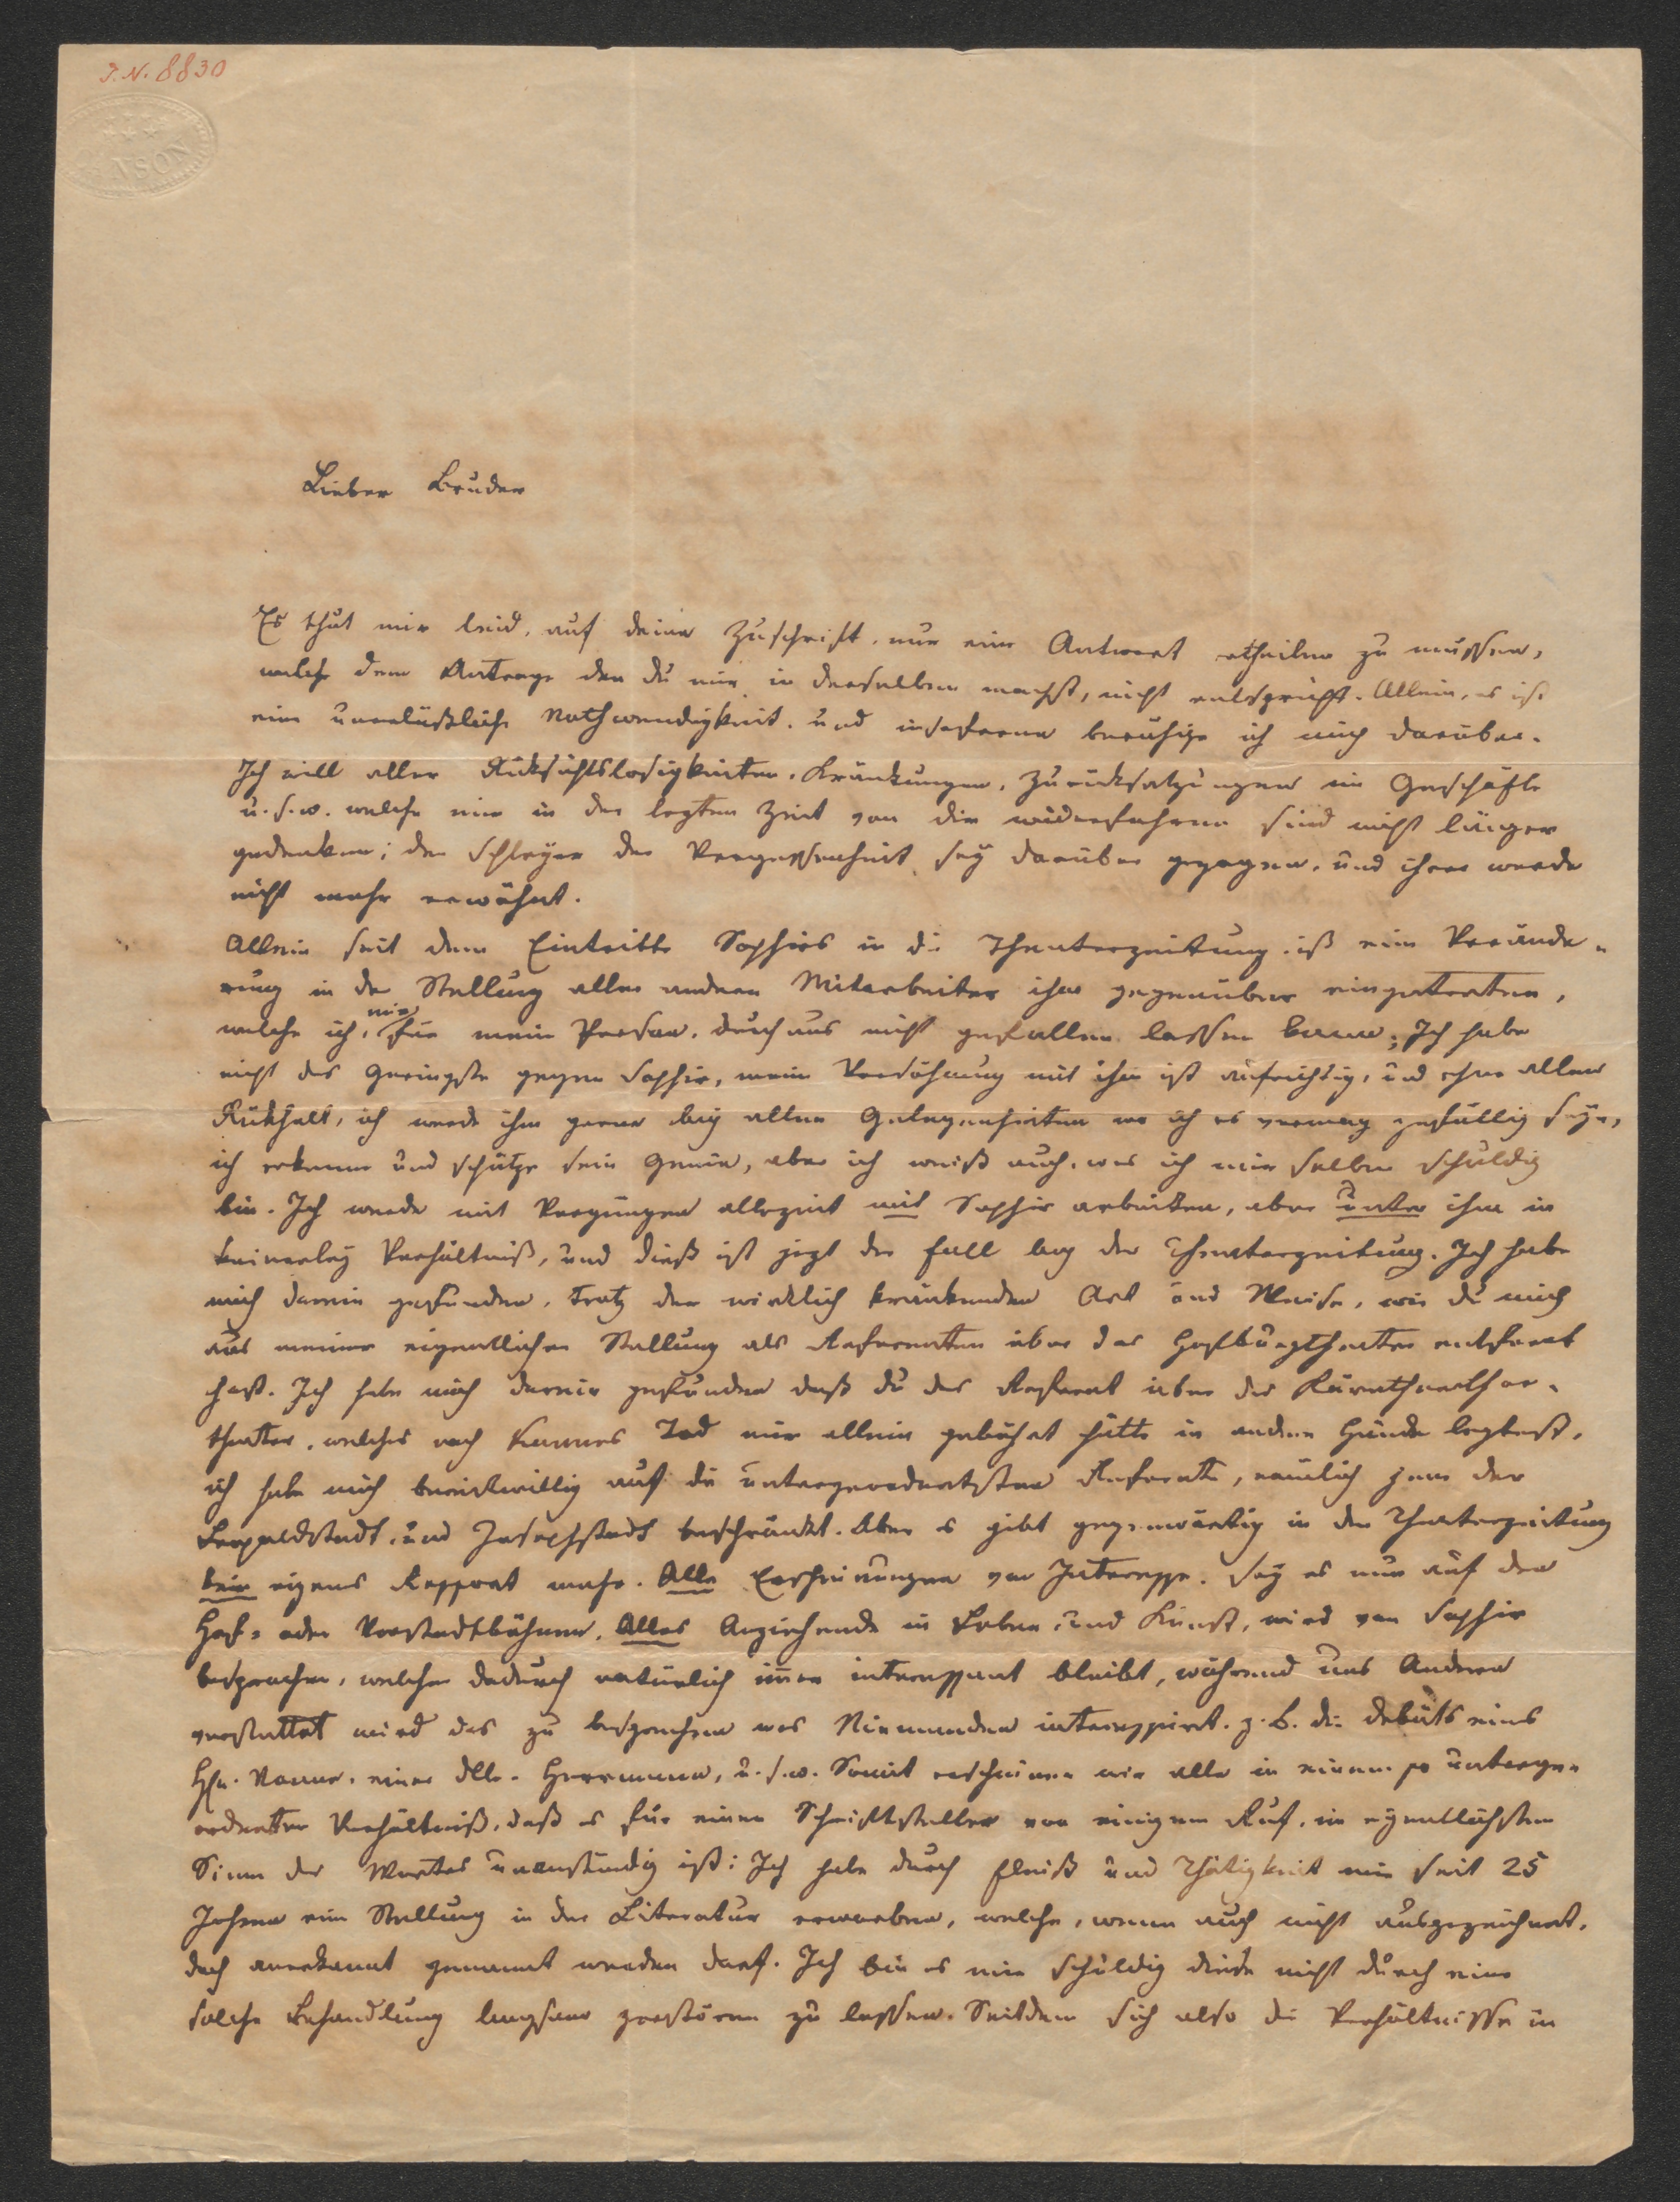 I. N. 8830
NSON
Lieber Bruder
Es thut mir leid, auf deine Zuschrift, nur eine Antwort ertheilen zu müssen,
welche dem Antrage den du mir in derselben machst, nicht entspricht. Allein, es ist
eine unerläßliche Nothwendigkeit, und insoferne beruhige ich mich darüber.
Ich will aller Rücksichtslosigkeiten, Kränkungen, Zurücksetzungen im Geschäfte
u. s. w. welche mir in der letzten Zeit von dir widerfahren sind nicht länger
gedenken; der Schleyer der Vergessenheit sey darüber gezogen, und ihrer werde
nicht mehr erwähnt.
Allein seit dem Eintritte Saphirs in die Theaterzeitung ist eine Verände-
rung in der Stellung aller andern Mitarbeiter ihm gegenüber eingetreten,
welche ich, mir für meine Person, durchaus nicht gefallen lassen kann; Ich habe
nicht das Geringste gegen Saphir, meine Versöhnung mit ihm ist aufrichtig, und ohne allen
Rückhalt, ich werde ihm gerne bey allen Gelegenheiten wo ich es vermag gefällig seyn,
ich erkenne und schätze sein Genie, aber ich weiß auch, was ich mir selber schuldig
bin. Ich werde mit Vergnügen allezeit mit Saphir arbeiten, aber unter ihm in
keinerley Verhältniß, und dieß ist jezt der Fall bey der Theaterzeitung. Ich habe
mich darein gefunden, trotz der wirklich kränkenden Art und Weise, wie du mich
aus meiner eigentlichen Stellung als Referenten über das Hofburgtheater entfernt
hast. Ich habe mich darein gefunden daß du das Referat über das Kärnthnerthor-
theater, welches nach Kannes Tod mir allein gebührt hätte in andere Hände legtest,
ich habe mich bereitwillig auf die untergeordnetsten Referate, nämlich jene der
Leopoldstadt, und Josephstadt beschränkt. Aber es gibt gegenwärtig in der Theaterzeitung
kein eigenes Refferat mehr. Alle Erscheinungen von Interesse, sey es nun auf den
Hof- oder Vorstadtbühnen, Alles Anziehende in Leben, und Kunst, wird von Saphir
besprochen, welcher dadurch natürlich immer interessant bleibt, während uns Andern
verstattet wird das zu besprechen was Niemanden interessirt, z. B. die debüts eines
Hrn. einer Dlle. Herrmann, u. s. w. Somit erscheinen wir alle in einem so unterge-
ordneten Verhältniß, daß es für einen Schriftsteller von einigem Ruf, im eigentlichsten
Sinne des Wortes unanständig ist: Ich habe durch Fleiß und Thätigkeit mir seit 25
Jahren eine Stellung in der Literatur erworben, welche, wenn auch nicht ausgezeichnet,
doch anerkannt genannt werden darf. Ich bin es mir schuldig diese nicht durch eine
solche Behandlung langsam zerstören zu lassen. Seitdem sich also die Verhältnisse in